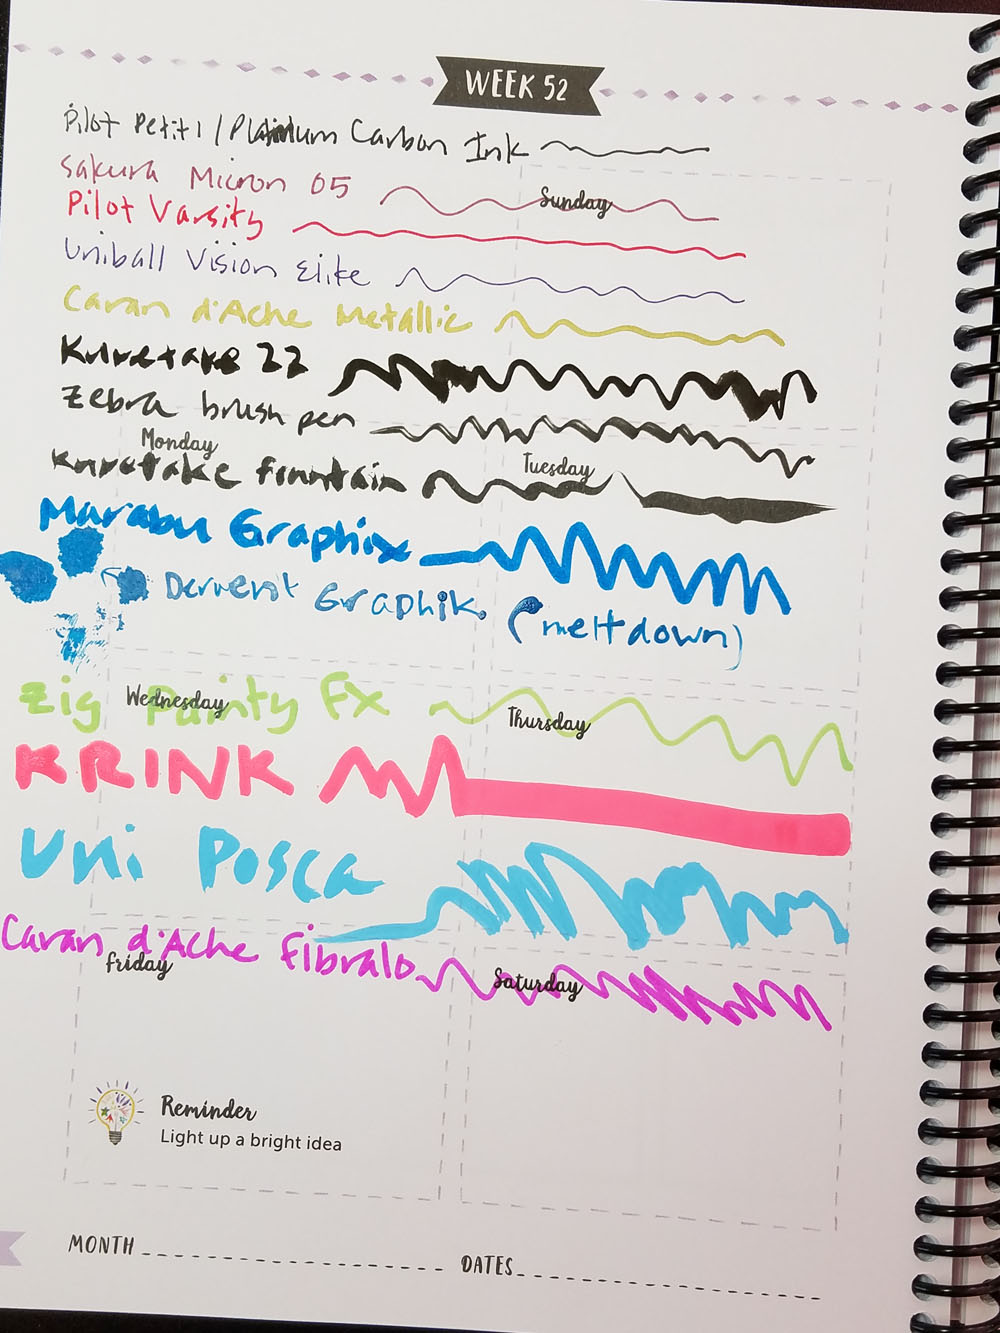 WEEK 52
Pilot Petit1 / Platinum Carbon Ink
Sakura Micron 05
Sunday
Pilot Varsity
Uniball Vision Elite
Caran d'Ache Metallic
Kuretake 22
Zebra brush pen
Monday
Tuesday
Kuretake fountain
Marabu Graphix
Derwent Graphik (meltdown)
Wednesday
Zig Painty FX
Thursday
KRINK
Uni Posca
Caran d'Ache fibralo
friday
Saturday
Reminder
Light up a bright idea
MONTH
DATES